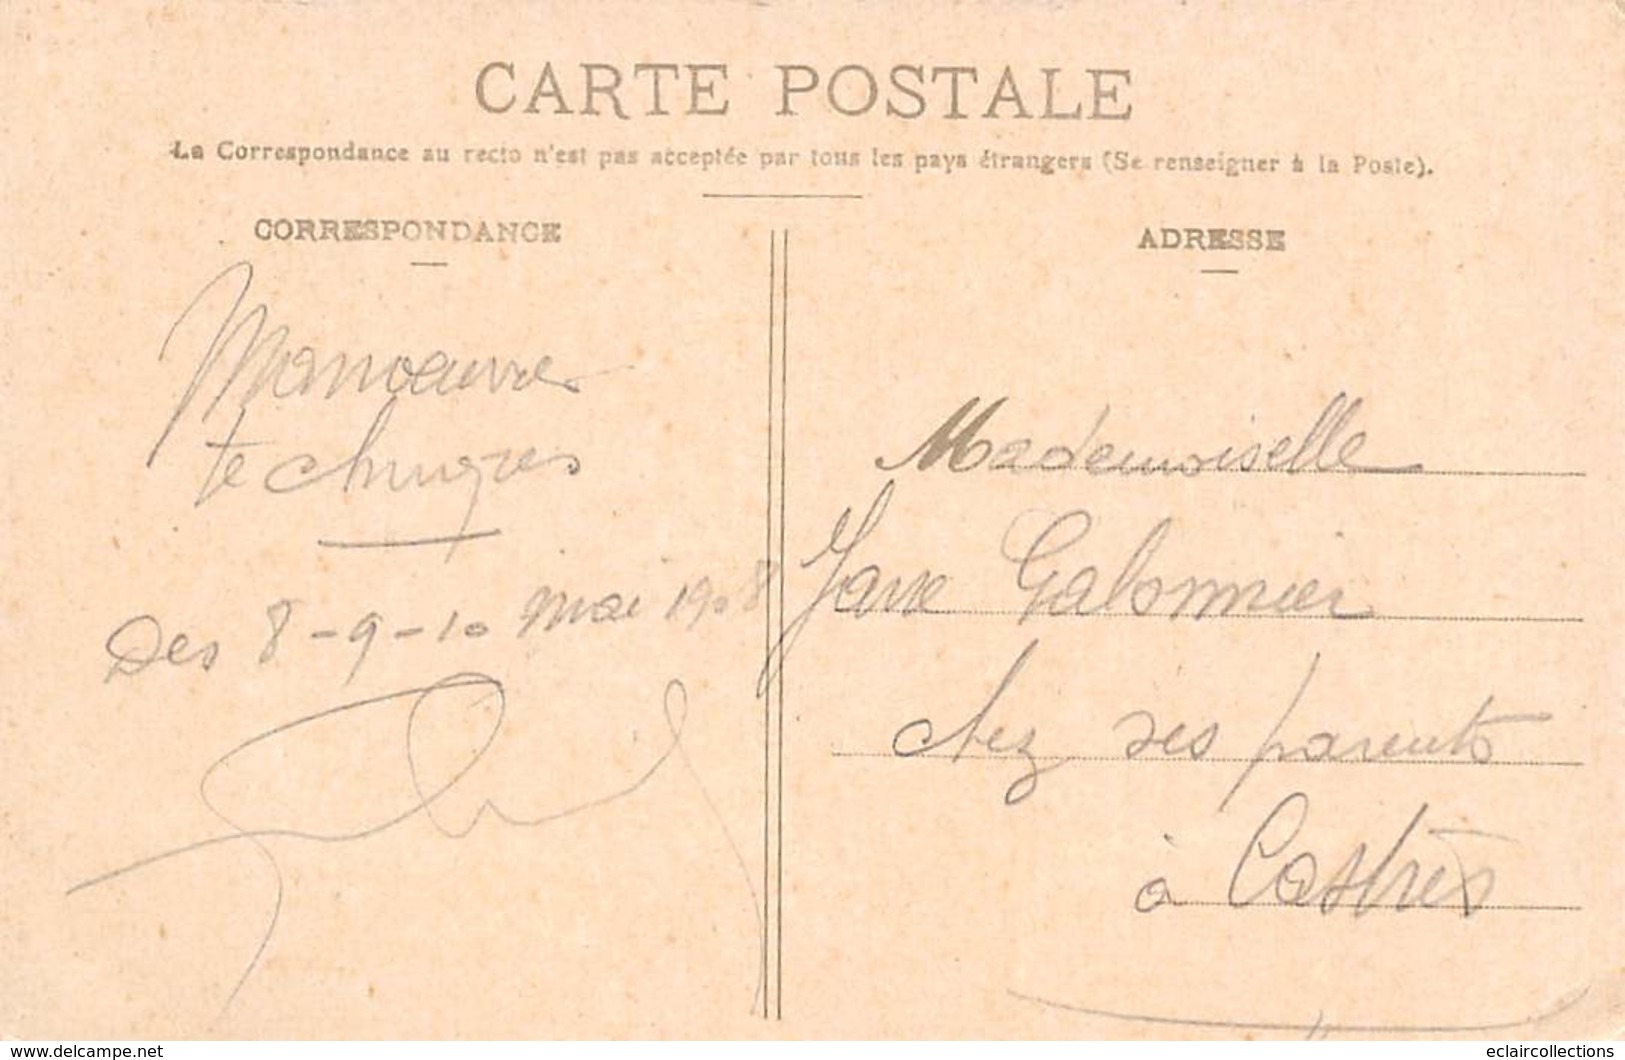 CARTE POSTALE
La Correspondance au recto n'est pas acceptée par tous les pays étrangers (Se renseigner à la Poste).
CORRESPONDANCE
ADRESSE
Manoeuvres
techniques
Des 8-9-10 mai 1908
Mademoiselle
Galonnier
chez ses parents
à Castres
eclaircollections